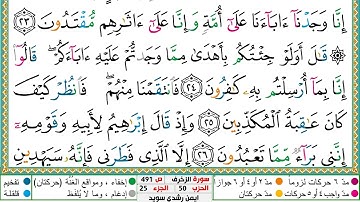 إِنَّا وَجَدْنَآ ءَابَآءَنَا عَلَىٰٓ أُمَّةٍ وَإِنَّا عَلَىٰٓ ءَاثَٰرِهِم مُّقْتَدُونَ ٢٣
۞ قَٰلَ أَوَلَوْ جِئْتُكُم بِأَهْدَىٰ مِمَّا وَجَدتُّمْ عَلَيْهِ ءَابَآءَكُمْ ۖ قَالُوٓا۟
إِنَّا بِمَآ أُرْسِلْتُم بِهِۦ كَٰفِرُونَ ٢٤ فَٱنتَقَمْنَا مِنْهُمْ ۖ فَٱنظُرْ كَيْفَ
كَانَ عَٰقِبَةُ ٱلْمُكَذِّبِينَ ٢٥ وَإِذْ قَالَ إِبْرَٰهِيمُ لِأَبِيهِ وَقَوْمِهِۦٓ
إِنَّنِى بَرَآءٌ مِّمَّا تَعْبُدُونَ ٢٦ إِلَّا ٱلَّذِى فَطَرَنِى فَإِنَّهُۥ سَيَهْدِينِ
مد ٦ حركات لزوما مد ٢ أو ٤ أو ٦ جوازا
مد واجب ٤ أو ٥ حركات مد حركتان
ص 491 سورة الزخرف
الجزء 25 الحزب 50
أيمن رشدي سويد
إخفاء، ومواقع الغنة (حركتان) تفخيم
إدغام، وما لا يلفظ قلقلة